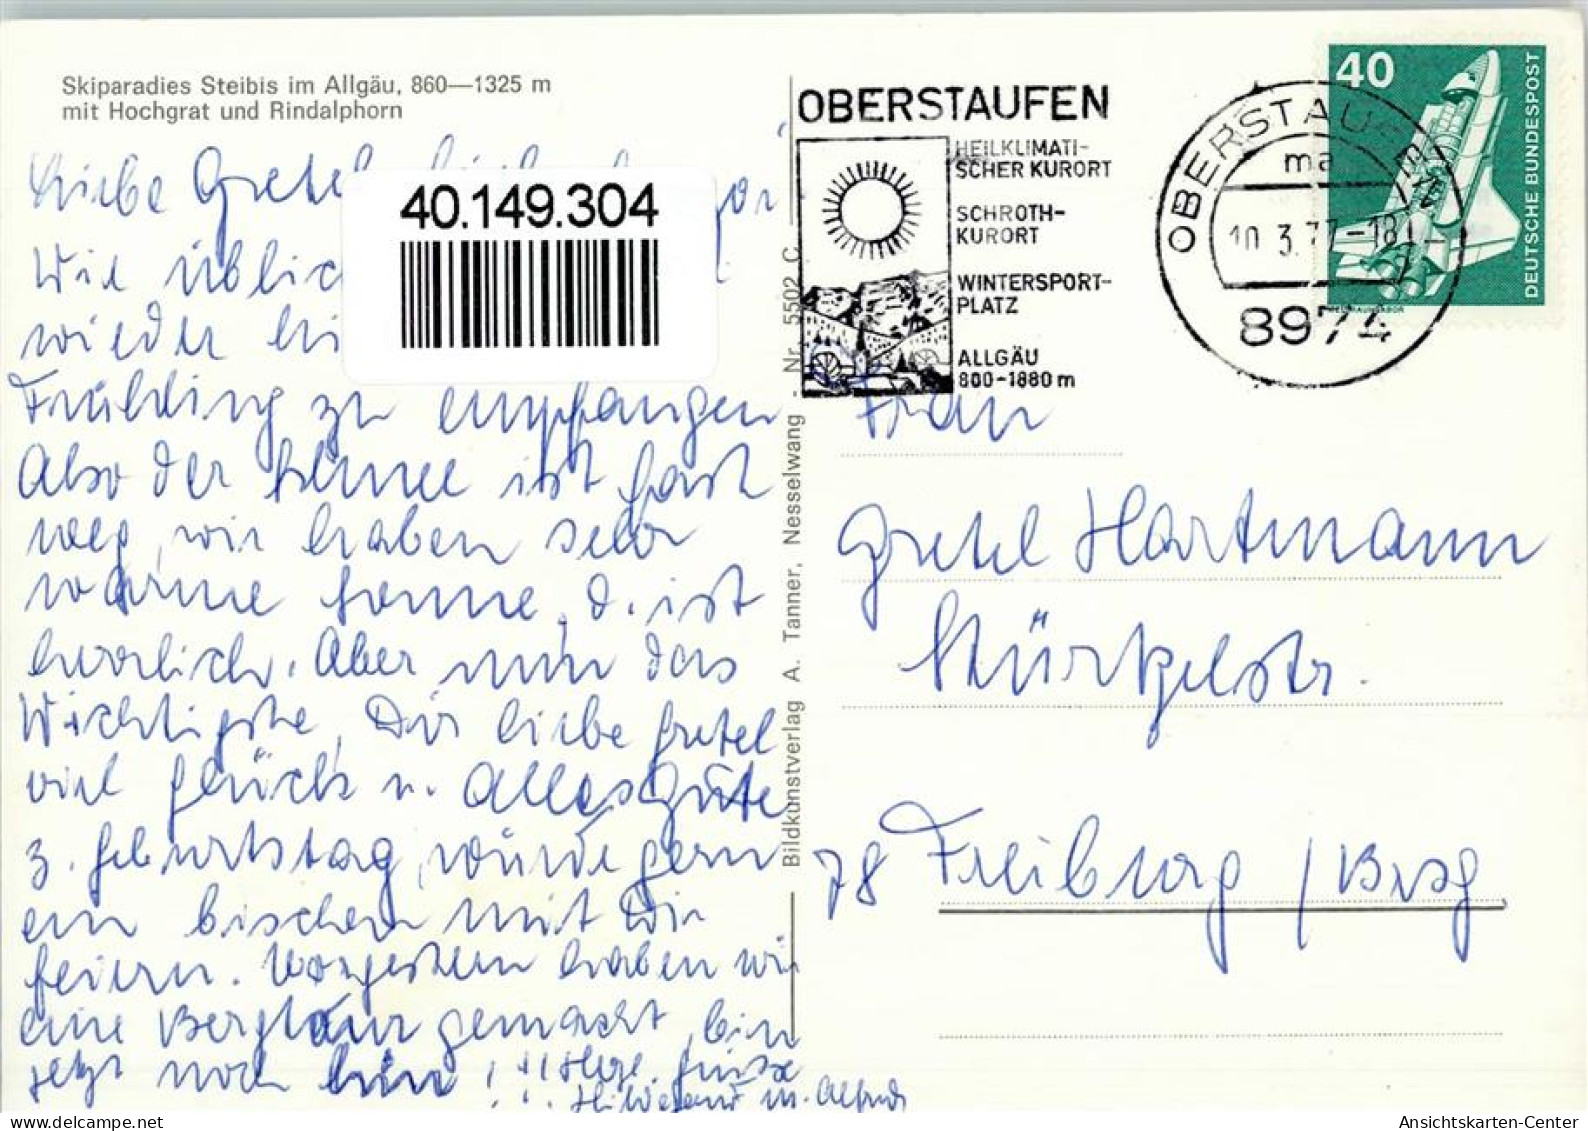 Skiparadies Steibis im Allgäu, 860—1325 m
mit Hochgrat und Rindalphorn
Liebe Gretel
40.149.304
Wie üblich
wieder
Frühling zu empfangen
Also der Schnee ist fast
weg, wir haben sehr
warme Sonne, d. ist
herrlich. Aber nun das
Wichtigste, Dir liebe Gretel
viel Glück u. Alles Gute
z. Geburtstag, würde gern
ein bischen mit Dir
feiern. Vorgestern haben wir
eine Bergtour gemacht, bin
jetzt noch hin! !! Herzl. Grüsse
Hildegard u. Alfred
Bildkunstverlag A. Tanner, Nesselwang - Nr. 5502 C
OBERSTAUFEN
HEILKLIMATI-
SCHER KURORT
SCHROTH-
KURORT
WINTERSPORT-
PLATZ
ALLGÄU
800-1880 m
OBERSTAUFEN
ma
10.3.77-18
8974
40
DEUTSCHE BUNDESPOST
Frau
Gretel Hartmann
Stürtzelstr.
78 Freiburg / Brsg
Ansichtskarten-Center